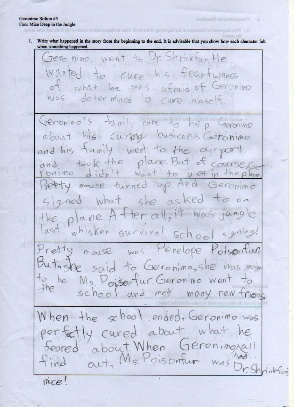 Geronimo Stilton #5
Four Mice Deep in the Jungle
1. Write what happened in the story from the beginning to the end. It is advisable that you show how each character felt
when something happened.
Geronimo went to Dr. Shrinkfur. He
wanted to cure his fearfulness
of what he was afraid of Geronimo
was determined to cure himself.
Geronimo's family came to help Geronimo
about his curing business Geronimo
and his family went to the airport
and took the plane. But of course, Ge-
ronimo didn't want to get in the plane
Pretty mouse turned up. And Geronimo
signed what she asked to on
the plane. After all, it was jungle
last whisker survival school
Pretty mouse was Penelope Poisonfur
But, she said to Geronimo, she was
to be Ms. Poisonfur Geronimo went to
the school and met many new friends
When the school ended, Geronimo was
perfectly cured about what he
feared about When Geronimo
find out, Ms Poisonfur was Dr. Shrinkfur
mice!